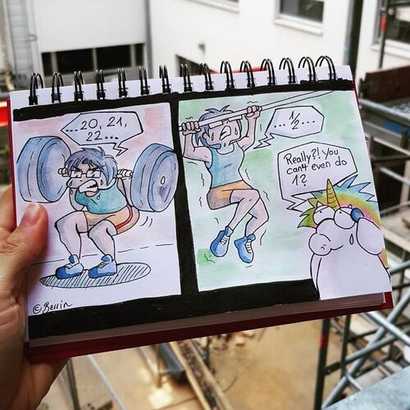 ...20, 21,
22...
...1/2...
Really?! You
can't even do
1?